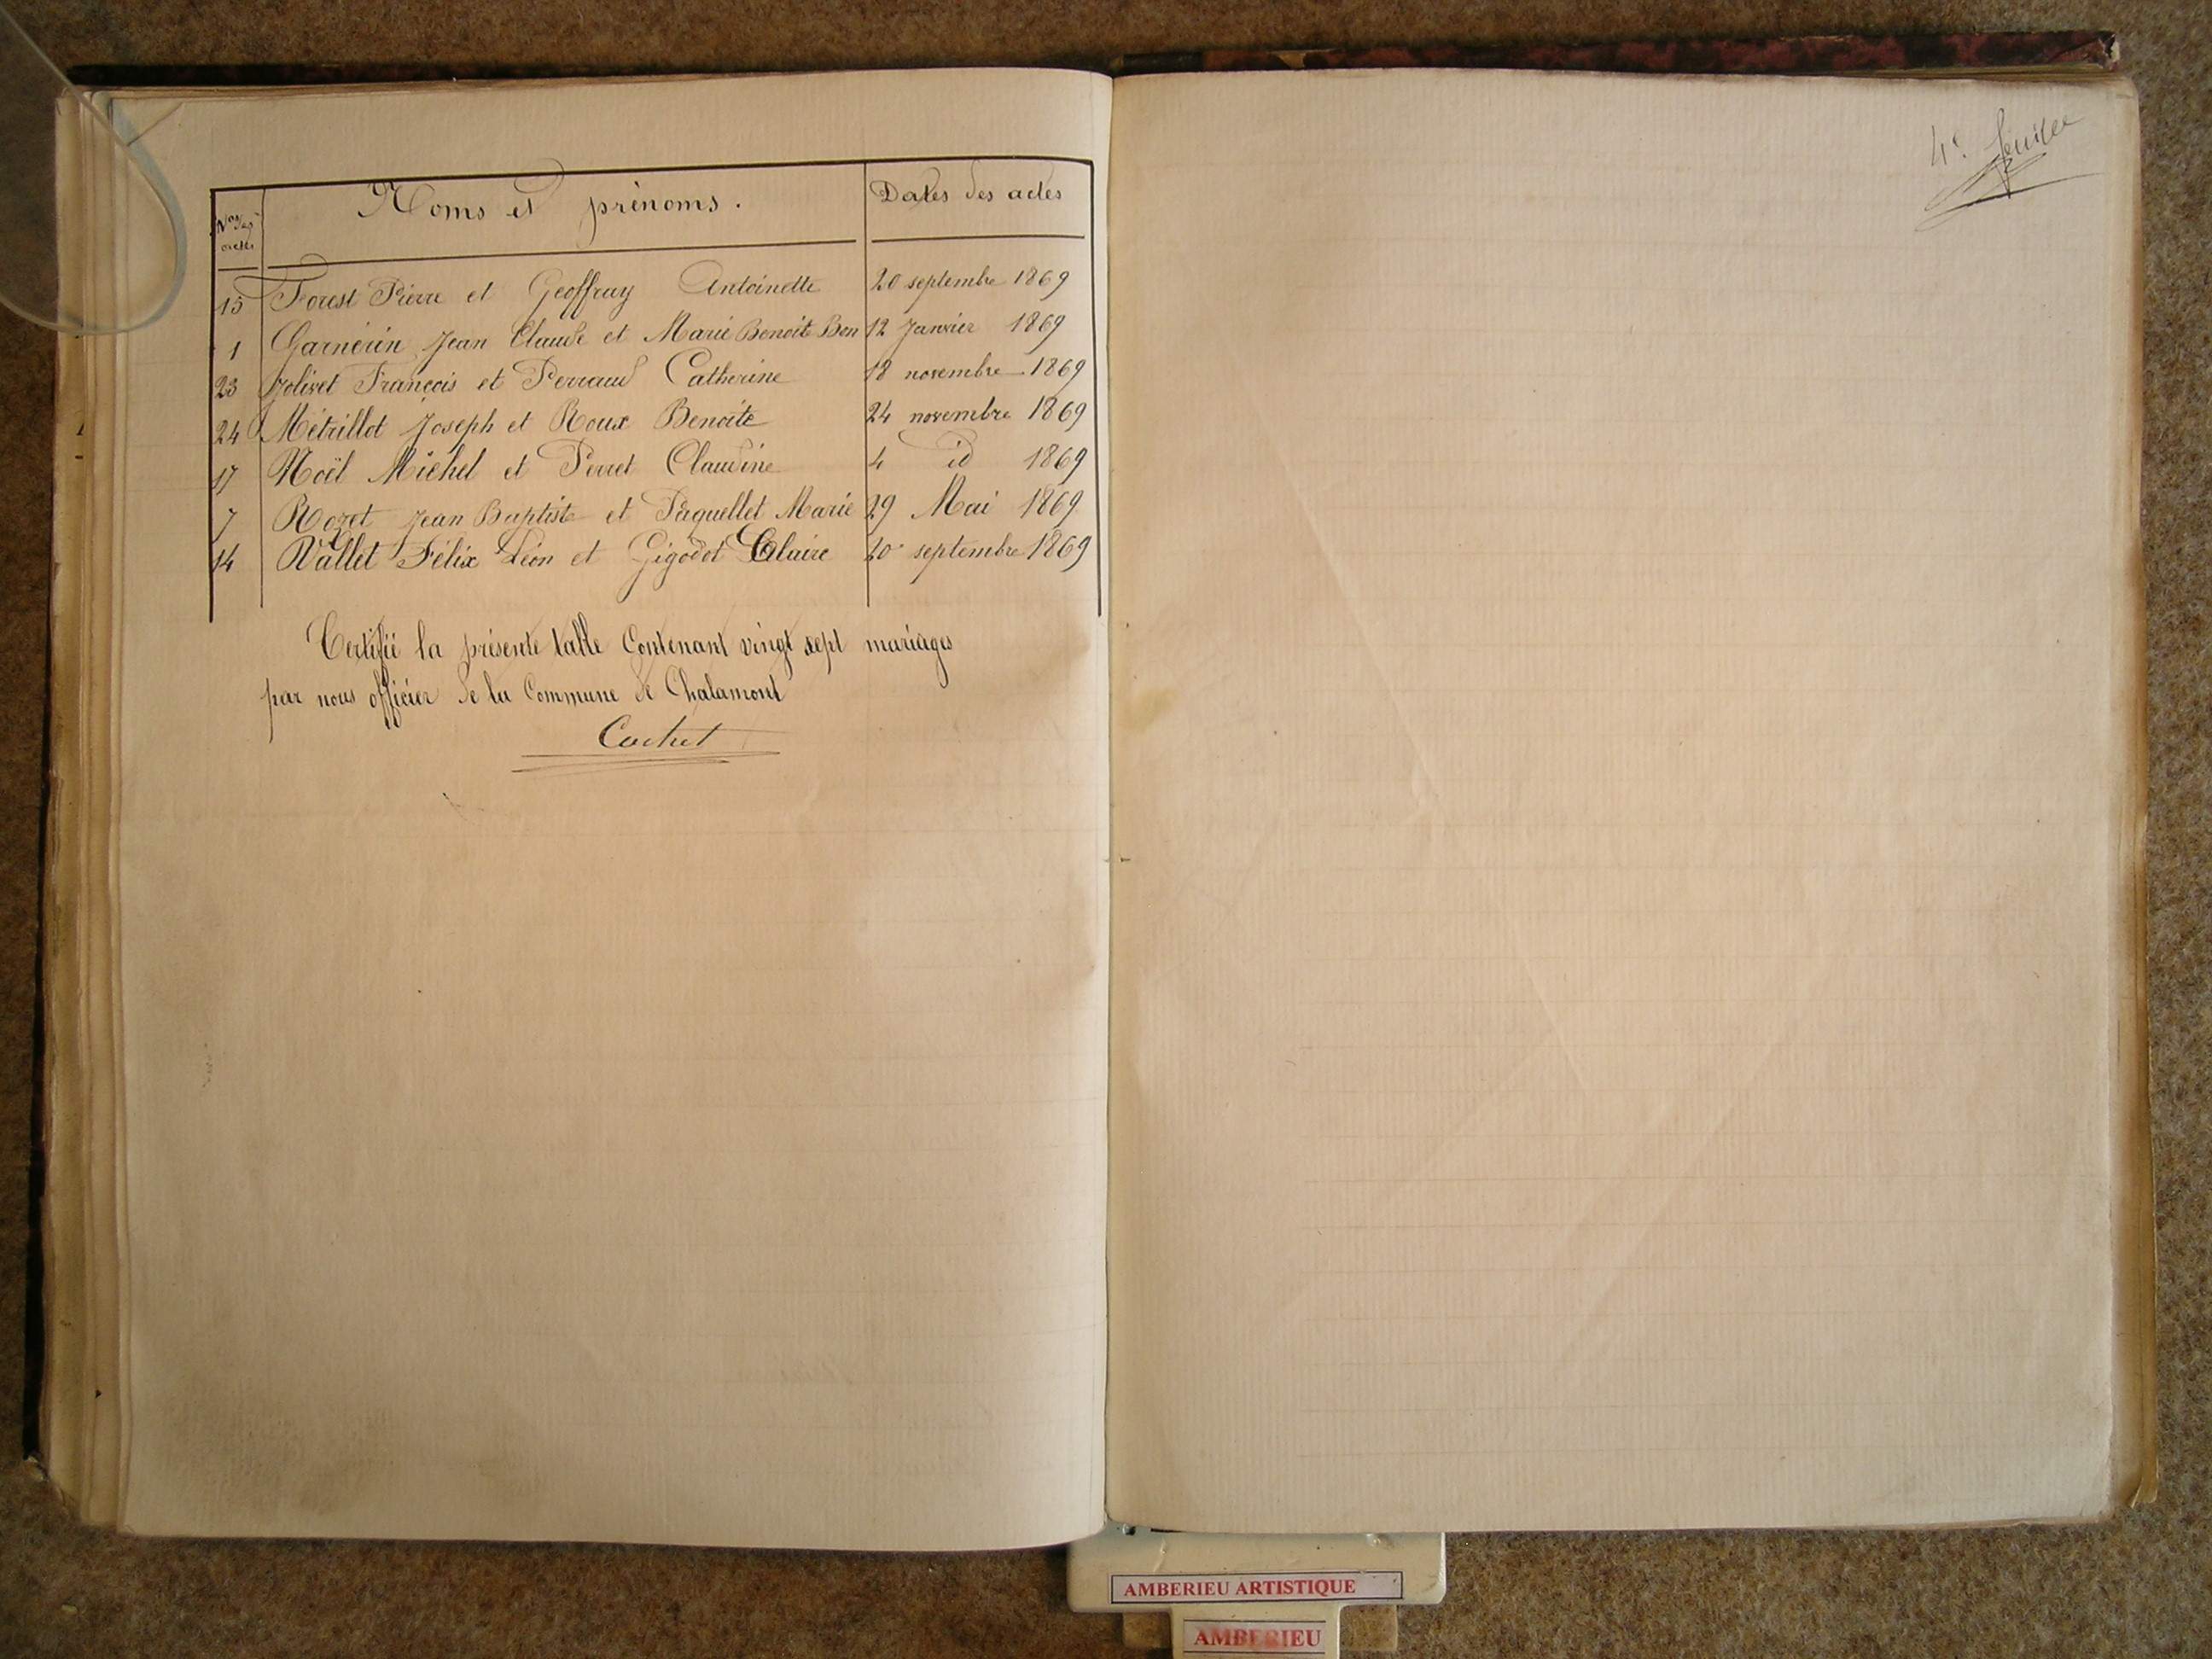 Nos des actes
Noms et prénoms.
Dates des actes
15 Forest Pierre et Geoffray Antoinette 20 septembre 1869
1 Garnerin Jean Claude et Marie Benoite Ben 12 Janvier 1869
23 Jolivet François et Perraud Catherine 18 novembre 1869
24 Métrillot Joseph et Roux Benoite 24 novembre 1869
17 Noël Michel et Perret Claudine 4 id 1869
7 Rozet Jean Baptiste et Paquellet Marie 29 Mai 1869
14 Vallet Félix Léon et Gigodot Claire 20 septembre 1869
Certifié la présente table Contenant vingt sept mariages
par nous officier de la Commune de Chalamont
Cochet
4e feuillet
AMBERIEU ARTISTIQUE
AMBERIEU